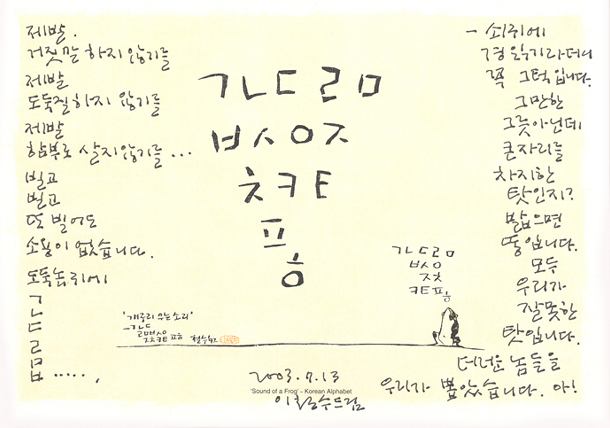 제발.
거짓말 하지 않기를
제발
도둑질 하지 않기를
제발
함부로 살지 않기를 ...
빌고
빌고
또 빌어도
소용이 없습니다.
도둑놈 귀에
ㄱ
ㄴ
ㄷ
ㄹ
ㅁ
ㅂ ....., 
ㄱㄴㄷㄹㅁ
ㅂㅅㅇㅈ
ㅊㅋㅌ
ㅍ
ㅎ
ㄱㄴㄷㄹㅁ
ㅋㅌㅍㅎ
'개구리 우는 소리'
-ㄱㄴㄷ
2003.9.13
'Sound of a Frog' - Korean Alphabet
이철수드림
- 쇠귀에
경 읽기라더니
꼭 그턱입니다.
그만한
그릇아닌데
큰자리를
차지한
탓인지?
밟으면
똥입니다.
모두
우리가
잘못한
탓입니다.
더러운 놈들을
우리가 뽑았습니다. 아!